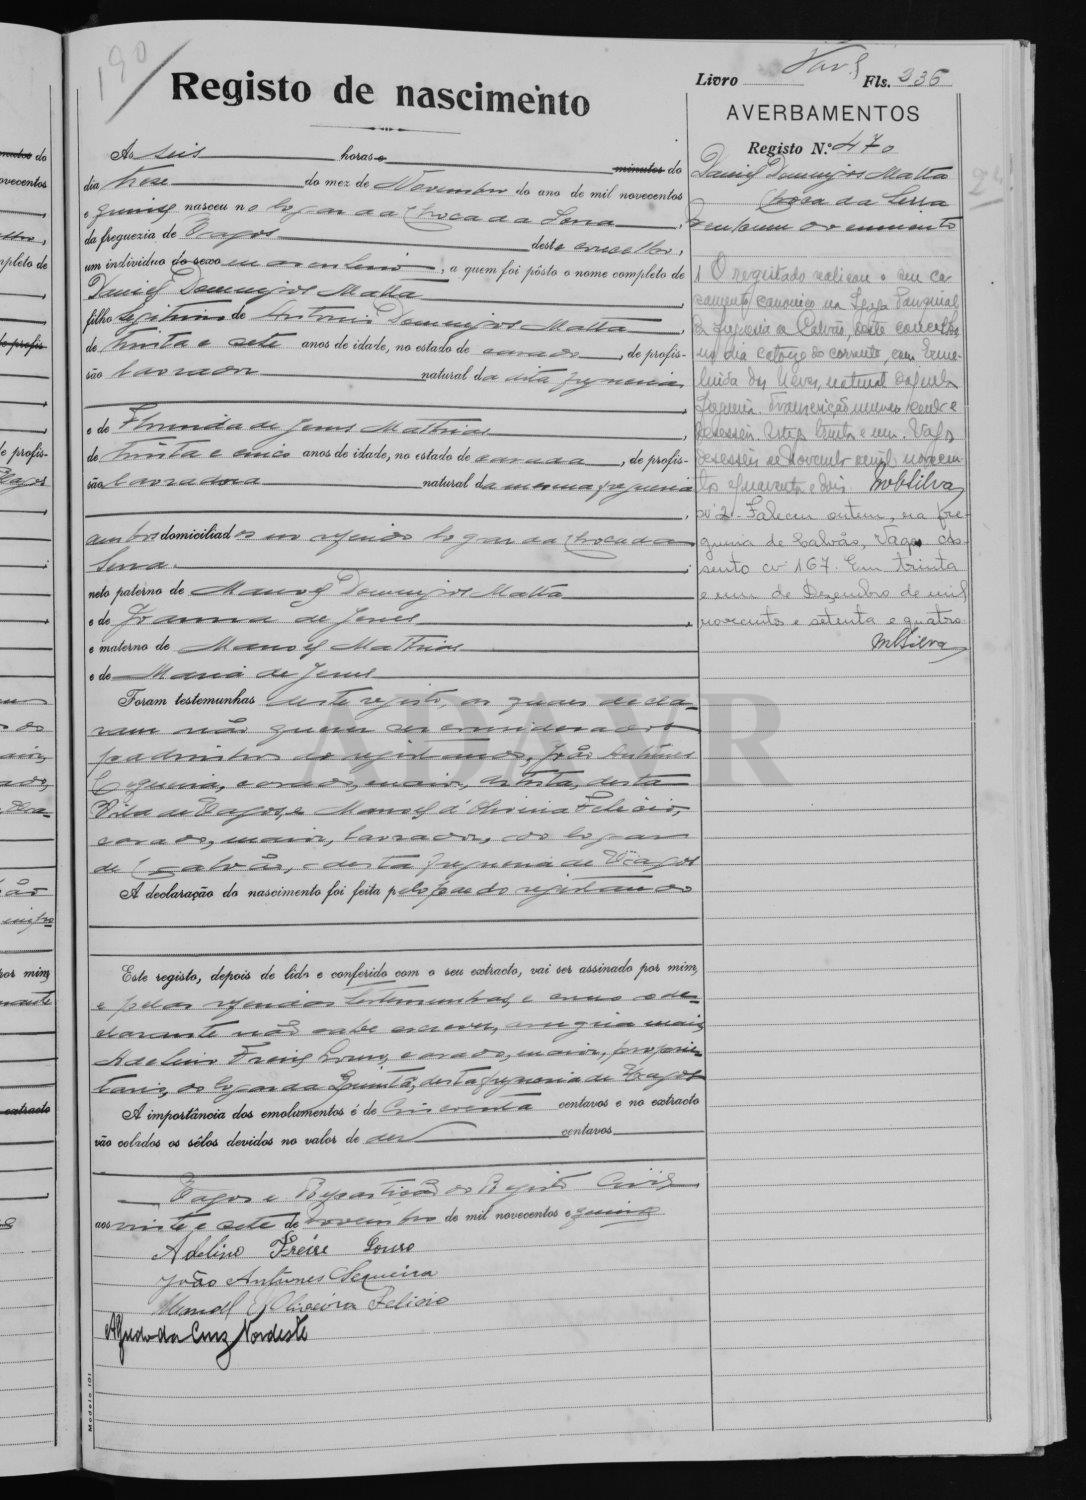 190
Registo de nascimento
Livro Fls. 336
AVERBAMENTOS
Registo N.º 470
Daniel Domingos Matta
Choca da Serra
Às seis horas e minutos do
dia treze do mez de Novembro do ano de mil novecentos
e quinze nasceu no logar da Choca da Serra,
da freguezia de Vagos deste concelho,
um individuo do sexo masculino, a quem foi pôsto o nome completo de
Daniel Domingos Matta
filho legitimo de Antonio Domingos Matta,
de trinta e sete anos de idade, no estado de casado, de profis-
são lavrador natural da dita freguesia
e de Florinda de Jesus Mathias,
de trinta e cinco anos de idade, no estado de casada, de profis-
são lavradora natural da mesma freguesia,
ambos domiciliados no referido logar da Choca da
Serra.
neto paterno de Manoel Domingos Matta
e de Joanna de Jesus,
e materno de Manoel Mathias
e de Maria de Jesus
Foram testemunhas deste registo, os quaes decla-
ram não querer ser considerados
padrinhos do registando, João Antunes
Sequeira, casado, maior, artista, desta
Vila de Vagos, e Manoel d'Oliveira Felicio,
casado, maior, lavrador, do logar
de Calvão, desta freguesia de Vagos
A declaração do nascimento foi feita pelo pae do registando
Este registo, depois de lido e conferido com o seu extracto, vai ser assinado por mim,
e pelas referidas testemunhas, e como o de-
clarante não sabe escrever, assigna mais
Adelino Freire Louro, casado, maior, proprie-
tario, do logar da Quintã, desta freguesia de Vagos
A importância dos emolumentos é de cincoenta centavos e no extracto
vão colados os sêlos devidos no valor de dez centavos
Vagos e Repartição do Registo Civil
aos vinte e sete de Novembro de mil novecentos e quinze
Adelino Freire Louro
João Antunes Sequeira
Manoel d'Oliveira Felicio
da Cruz Nordeste
1 O registado realisou o seu ca-
samento canonico na Igreja Paroquial
da freguesia de Calvão, deste concelho
no dia catorze do corrente, com
das Neves, natural daquela
freguesia. Transcrição numero cento e
desesseis. trinta e um. Vagos
desesseis de Novembro de mil novecen-
tos e quarenta e dois. Silva
nº 2 - Faleceu ontem, na fre-
guesia de Calvão, Vagos. As-
sento nº 167. Em trinta
e um de Dezembro de mil
novecentos e setenta e quatro.
MSilva
ADAVR
Modelo 101